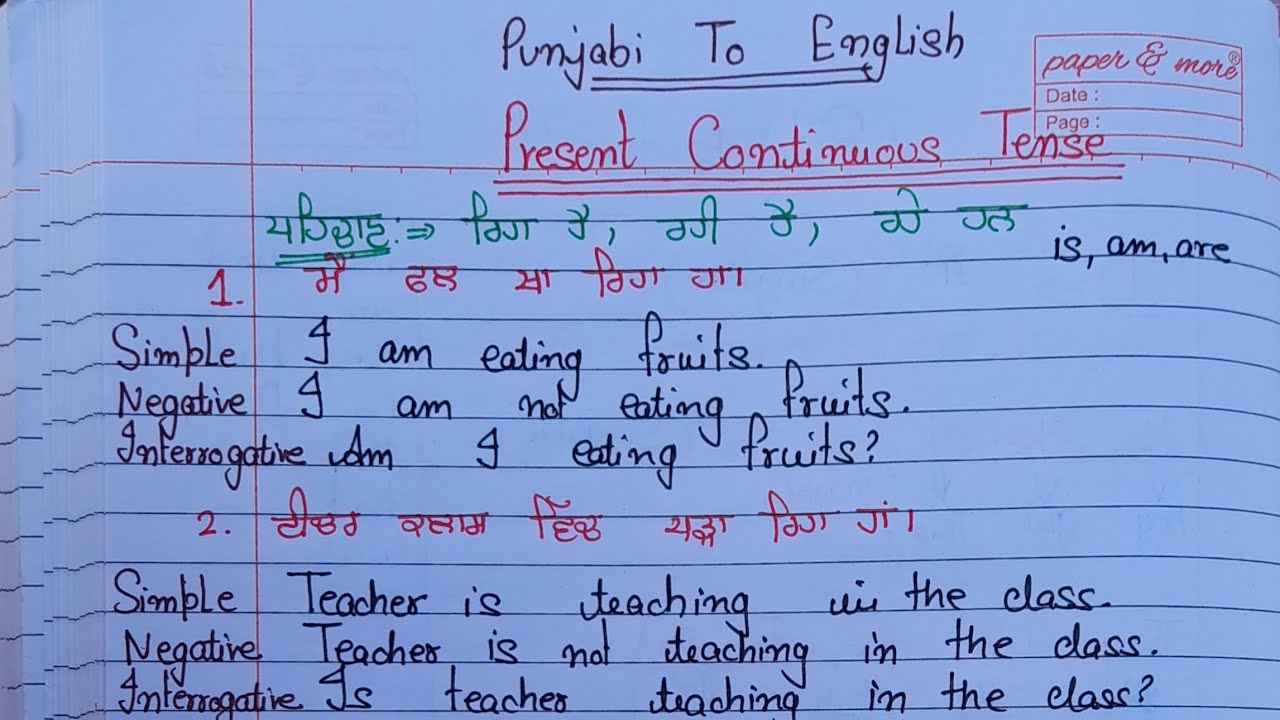 Punjabi To English
paper & more®
Date :
Page :
Present Continuous Tense
ਪਹਿਚਾਣ :⇒ ਰਿਹਾ ਹੈ, ਰਹੀ ਹੈ, ਰਹੇ ਹਨ is, am, are
1. ਮੈਂ ਫਲ ਖਾ ਰਿਹਾ ਹਾ।
Simple I am eating fruits.
Negative I am not eating fruits.
Interrogative Am I eating fruits?
2. ਟੀਚਰ ਕਲਾਸ ਵਿੱਚ ਪੜ੍ਹਾ ਰਿਹਾ ਹਾਂ।
Simple Teacher is teaching in the class.
Negative Teacher is not teaching in the class.
Interrogative Is teacher teaching in the class?